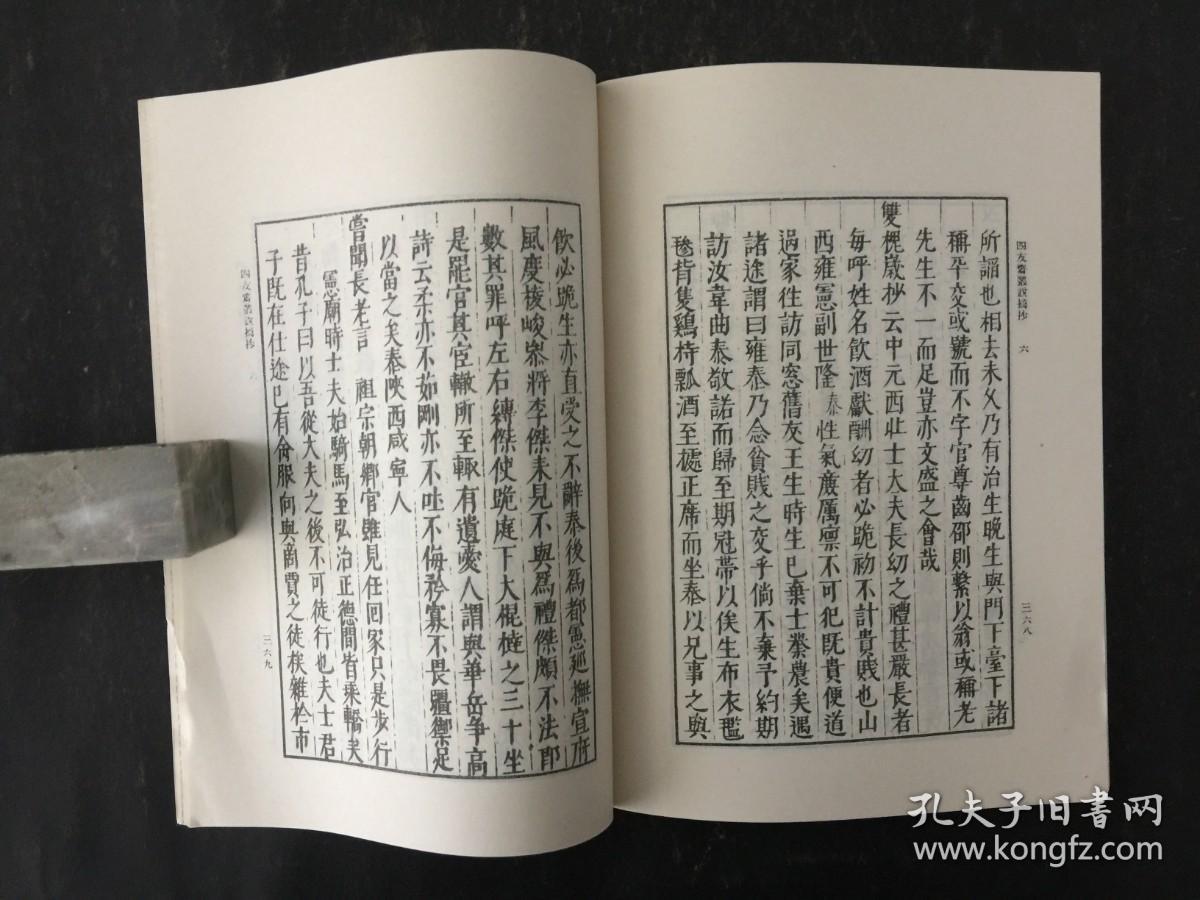 四友齋叢說摘抄 六 三六八
所謟也相去未乆乃有治生晚生與門下臺下諸
稱平交或號而不字官尊齒邵則繫以翁或稱老
先生不一而足豈亦文盛之會哉
雙槐歲抄云中元西北士大夫長㓜之禮甚嚴長者
每呼姓名飲酒獻酬㓜者必跪初不計貴賤也山
西雍憲副世隆泰性氣廣厲凛不可犯既貴便道
過家徃訪同窓舊友王生時生巳棄士業農矣遇
諸途謂曰雍泰乃念貧賤之交乎倘不棄予約期
訪汝韋曲泰敬諾而歸至期冠帶以俟生布衣襤
背隻鷄持瓢酒至遽正席而坐泰以兄事之與
飲必跪生亦直受之不辭泰後爲都憲廵撫宣府
風度稜峻叅將李傑来見不與爲禮傑頗不法即
數其罪呼左右縛傑使跪庭下大棍撻之三十坐
是罷官其宦轍所至輙有遺愛人謂與華岳争高
詩云柔亦不茹剛亦不吐不侮矜寡不畏彊禦足
以當之矣泰陝西咸寧人
嘗聞長老言 祖宗朝鄉官雖見任回家只是步行
憲廟時士夫始騎馬至弘治正德間皆乘轎矣
昔孔子曰以吾從大夫之後不可徒行也夫士君
子既在仕途巳有命服而與商賈之徒挨雜於市
四友齋叢說摘抄 三六九
孔夫子旧书网
www.kongfz.com